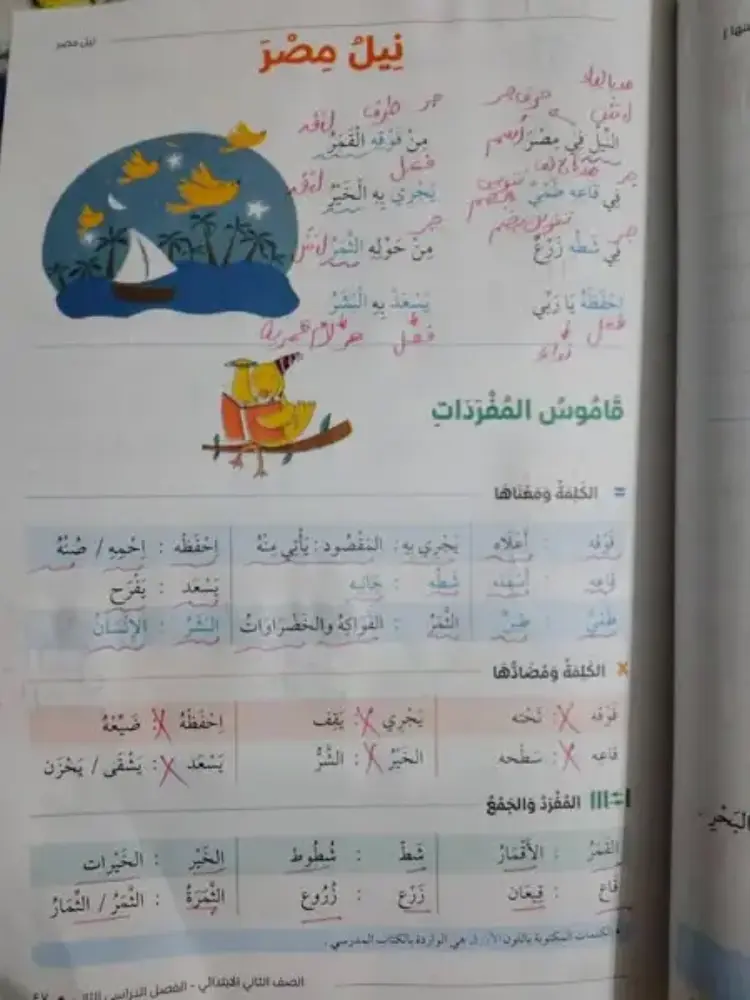 نيل مصر
نِيلُ مِصْرَ
النِّيلُ فِي مِصْرَ مِنْ فَوْقِهِ الْقَمَرُ
فِي قَاعِهِ طَمْيٌ يَجْرِي بِهِ الْخَيْرُ
فِي شَطِّهِ زَرْعٌ مِنْ حَوْلِهِ الثَّمَرُ
احْفَظْهُ يَا رَبِّي يَسْعَدْ بِهِ الْبَشَرُ
فعل نداء فعل لام قمرية
قَامُوسُ الْمُفْرَدَاتِ
= الكَلِمَةُ وَمَعْنَاهَا
فَوْقه : أَعْلَاه يَجْرِي بِهِ : المَقْصُود : يَأْتِي مِنْهُ احْفَظْه : اِحْمِهِ / صُنْهُ
قاعه : أسفله شَطّه : جَانِبه يَسْعَد : يَفْرَح
طَمْيٌ : طِينٌ الثَّمَرُ : الفَوَاكِهُ والخَضْرَاوَاتُ البَشَرُ : الإِنْسَانُ
× الكَلِمَةُ وَمُضَادُّهَا
فَوْقه × : تَحْته يَجْرِي × : يَقِف احْفَظْهُ × : ضَيِّعْهُ
قاعه × : سَطْحه الخَيْرُ × : الشَّرُّ يَسْعَد × : يَشْقَى / يَحْزَن
المُفْرَدُ وَالجَمْعُ
القَمَرُ : الأَقْمَارُ شَطّ : شُطُوط الخَيْر : الخَيْرَات
قَاع : قِيعَان زَرْع : زُرُوع الثَّمَرَةُ : الثَّمَرُ / الثِّمَارُ
• الكلمات المكتوبة باللون الأزرق هي الواردة بالكتاب المدرسي .
الصف الثاني الابتدائي - الفصل الدراسي الثاني • ٤٧